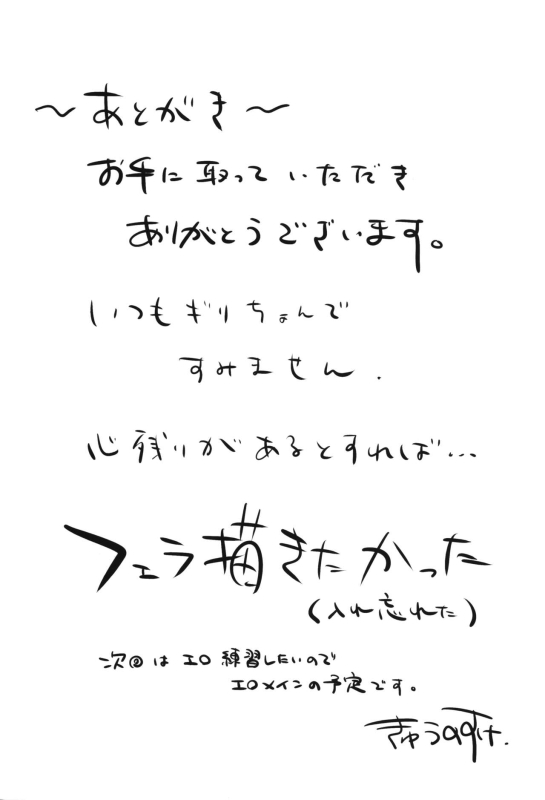 ～あとがき～
お手に取っていただき
ありがとうございます。
いつもギリちょんで
すみません.
心残りがあるとすれば…
フェラ描きたかった
(入れ忘れた)
次回は エロ 練習したいので
エロメインの予定です。